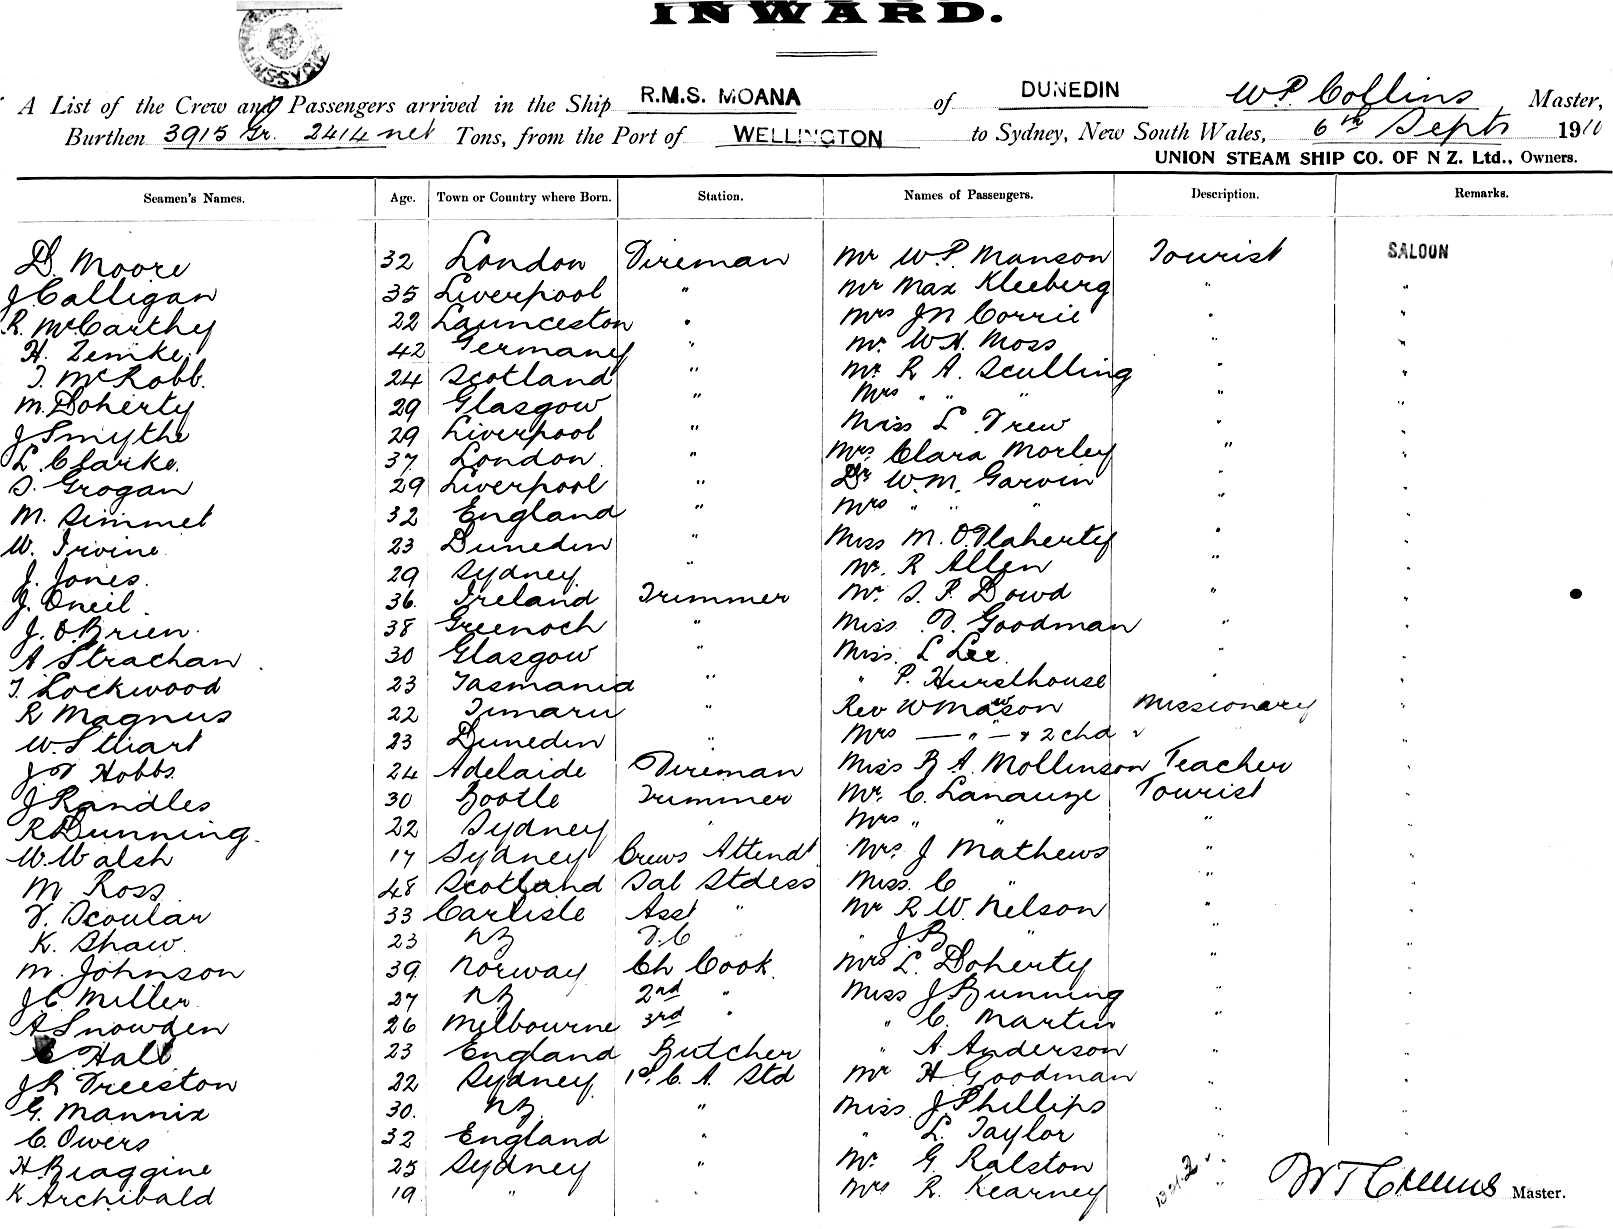 INWARD.
A List of the Crew and Passengers arrived in the Ship R.M.S. MOANA of DUNEDIN W.P. Collins Master,
Burthen 3915 Gr. 2414 net Tons, from the Port of WELLINGTON to Sydney, New South Wales, 6th Sept 1910
UNION STEAM SHIP CO. OF N Z. Ltd., Owners.
Seamen's Names. Age. Town or Country where Born. Station. Names of Passengers. Description. Remarks.
D. Moore 32 London Fireman Mr W.P. Manson Tourist SALOON
J Calligan 35 Liverpool " Mr Max Kleeberg " "
R. McCarthy 22 Launceston " Mrs J N Corrie " "
H. Zemke 42 Germany " Mr. W H. Moss " "
J. McRobb. 24 Scotland " Mr. R A. Sculling " "
M. Doherty 29 Glasgow " Mrs " " " " "
J Smythe 29 Liverpool " Miss L Drew " "
L. Clarke. 37 London " Mrs. Clara Morley " "
S. Grogan 29 Liverpool " Dr W.M. Garvin " "
M. Simmet 32 England " Mrs " " " " "
W. Irvine 23 Dunedin " Miss M. O'Flaherty " "
J. Jones. 29 Sydney " Mr. R Allen " "
J. Oneil. 36. Ireland Trimmer Mr. S. P. Dowd " "
J. O'Brien. 38 Greenoch " Miss. F. Goodman " "
A Strachan 30 Glasgow " Miss. L Lee " "
T. Lockwood 23 Tasmania " " P. Hurslhouse " "
R Magnus 22 Timaru " Rev W Mawson Missionary "
W. Stuart 23 Dunedin " Mrs — " — & 2 chd " "
J F Hobbs 24 Adelaide Fireman Miss B A. Mollinson Teacher "
J Randles 30 Bootle Trimmer Mr. C. Lanauze Tourist "
R Dunning. 22 Sydney " Mrs " " " "
W. Walsh 17 Sydney Crews Attendt Mrs. J Mathews " "
M Ross 48 Scotland Sal Stdess Miss. C " " "
F. Scoular 33 Carlisle Asst " Mr R W. Nelson " "
K. Shaw 23 NZ F.C " " J B " " "
M. Johnson 39 Norway Ch Cook. Mrs L. Doherty " "
J C Miller 27 NZ 2nd " Miss J Bunning " "
A Snowden 26 Melbourne 3rd " " C. Martin " "
Hall 23 England Butcher " A. Anderson " "
J L Treeston 22 Sydney 1st. C. A. Std Mr H Goodman " "
G. Mannix 30. NZ. " Miss. J Phillips " "
C. Owers 32 England " " L. Taylor " "
H Biaggine 25 Sydney " Mr. G. Ralston "
K Archibald 19 " " Mrs R. Kearney " Master.